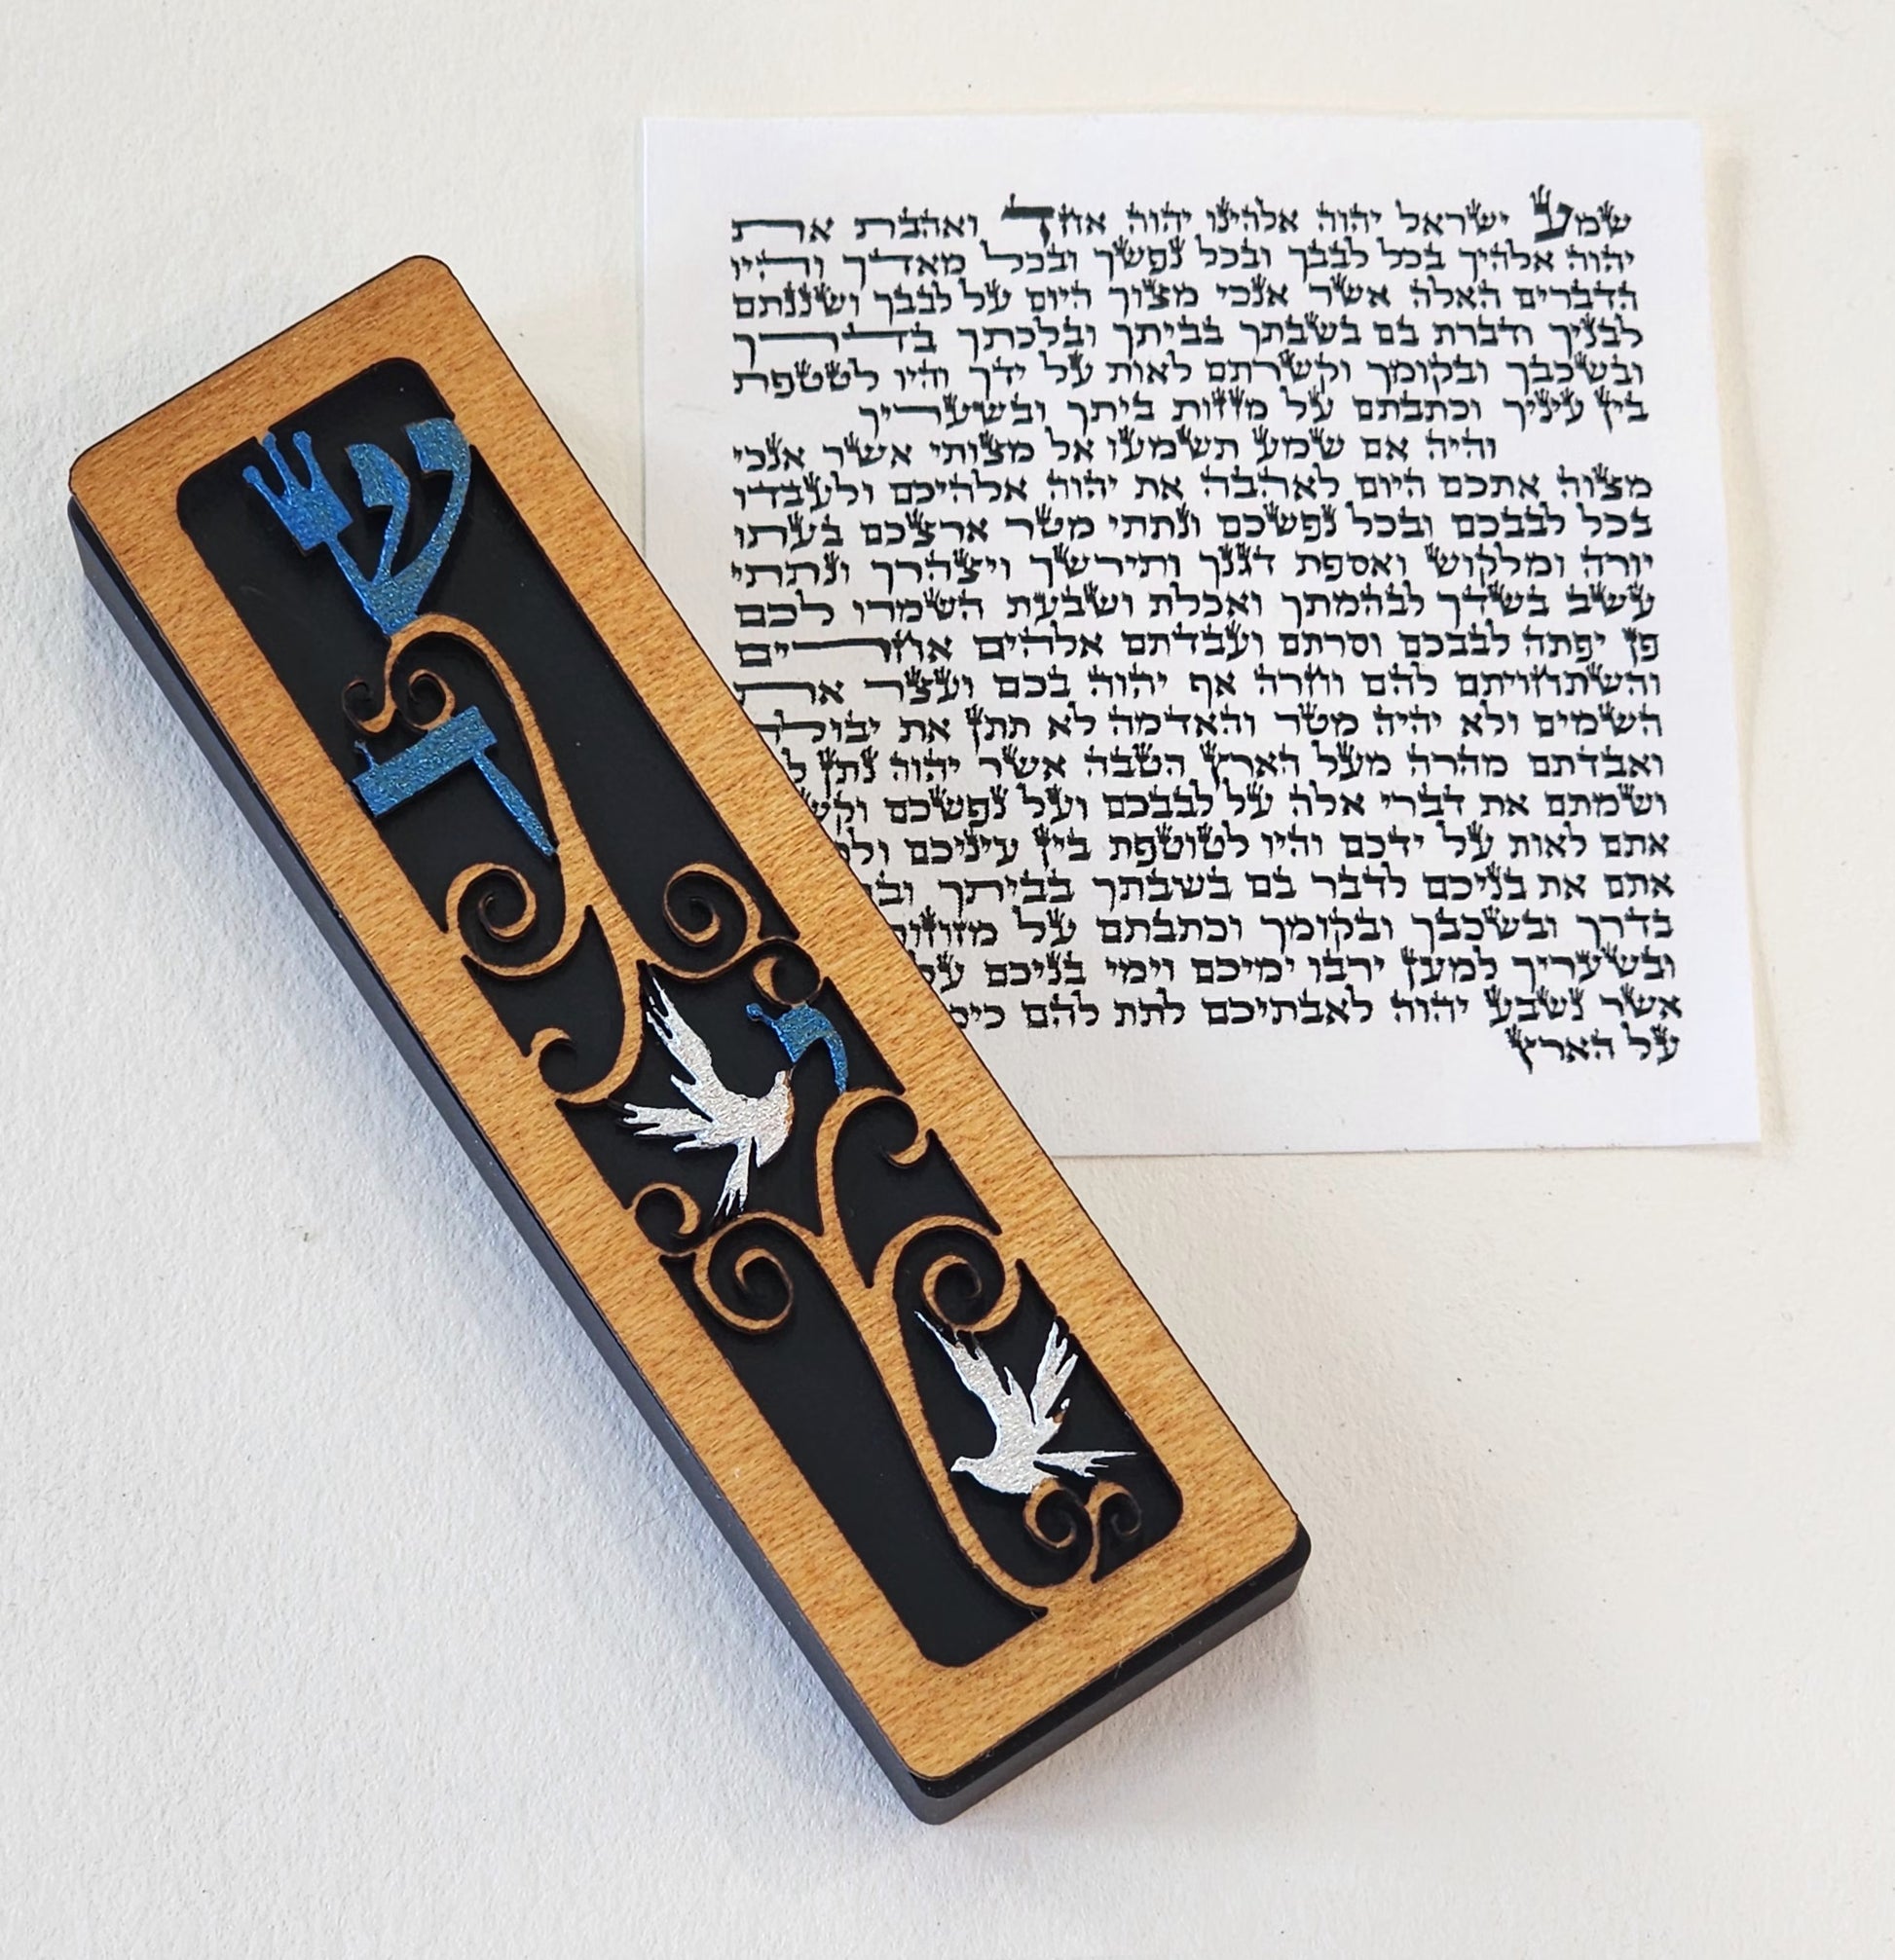 ש
ד
י
שמע ישראל יהוה אלהינו יהוה אחד ואהבת את
יהוה אלהיך בכל לבבך ובכל נפשך ובכל מאדך והיו
הדברים האלה אשר אנכי מצוך היום על לבבך ושננתם
לבניך ודברת בם בשבתך בביתך ובלכתך בדרך
ובשכבך ובקומך וקשרתם לאות על ידך והיו לטטפת
בין עיניך וכתבתם על מזזות ביתך ובשעריך
והיה אם שמע תשמעו אל מצותי אשר אנכי
מצוה אתכם היום לאהבה את יהוה אלהיכם ולעבדו
בכל לבבכם ובכל נפשכם ונתתי מטר ארצכם בעתו
יורה ומלקוש ואספת דגנך ותירשך ויצהרך ונתתי
עשב בשדך לבהמתך ואכלת ושבעת השמרו לכם
פן יפתה לבבכם וסרתם ועבדתם אלהים אחרים
והשתחויתם להם וחרה אף יהוה בכם ועצר את
השמים ולא יהיה מטר והאדמה לא תתן את יבולה
ואבדתם מהרה מעל הארץ הטבה אשר יהוה נתן
ושמתם את דברי אלה על לבבכם ועל נפשכם
אתם לאות על ידכם והיו לטוטפת בין עיניכם
אתם את בניכם לדבר בם בשבתך בביתך
בדרך ובשכבך ובקומך וכתבתם על
ובשעריך למען ירבו ימיכם וימי בניכם
אשר נשבע יהוה לאבתיכם לתת להם
על הארץ